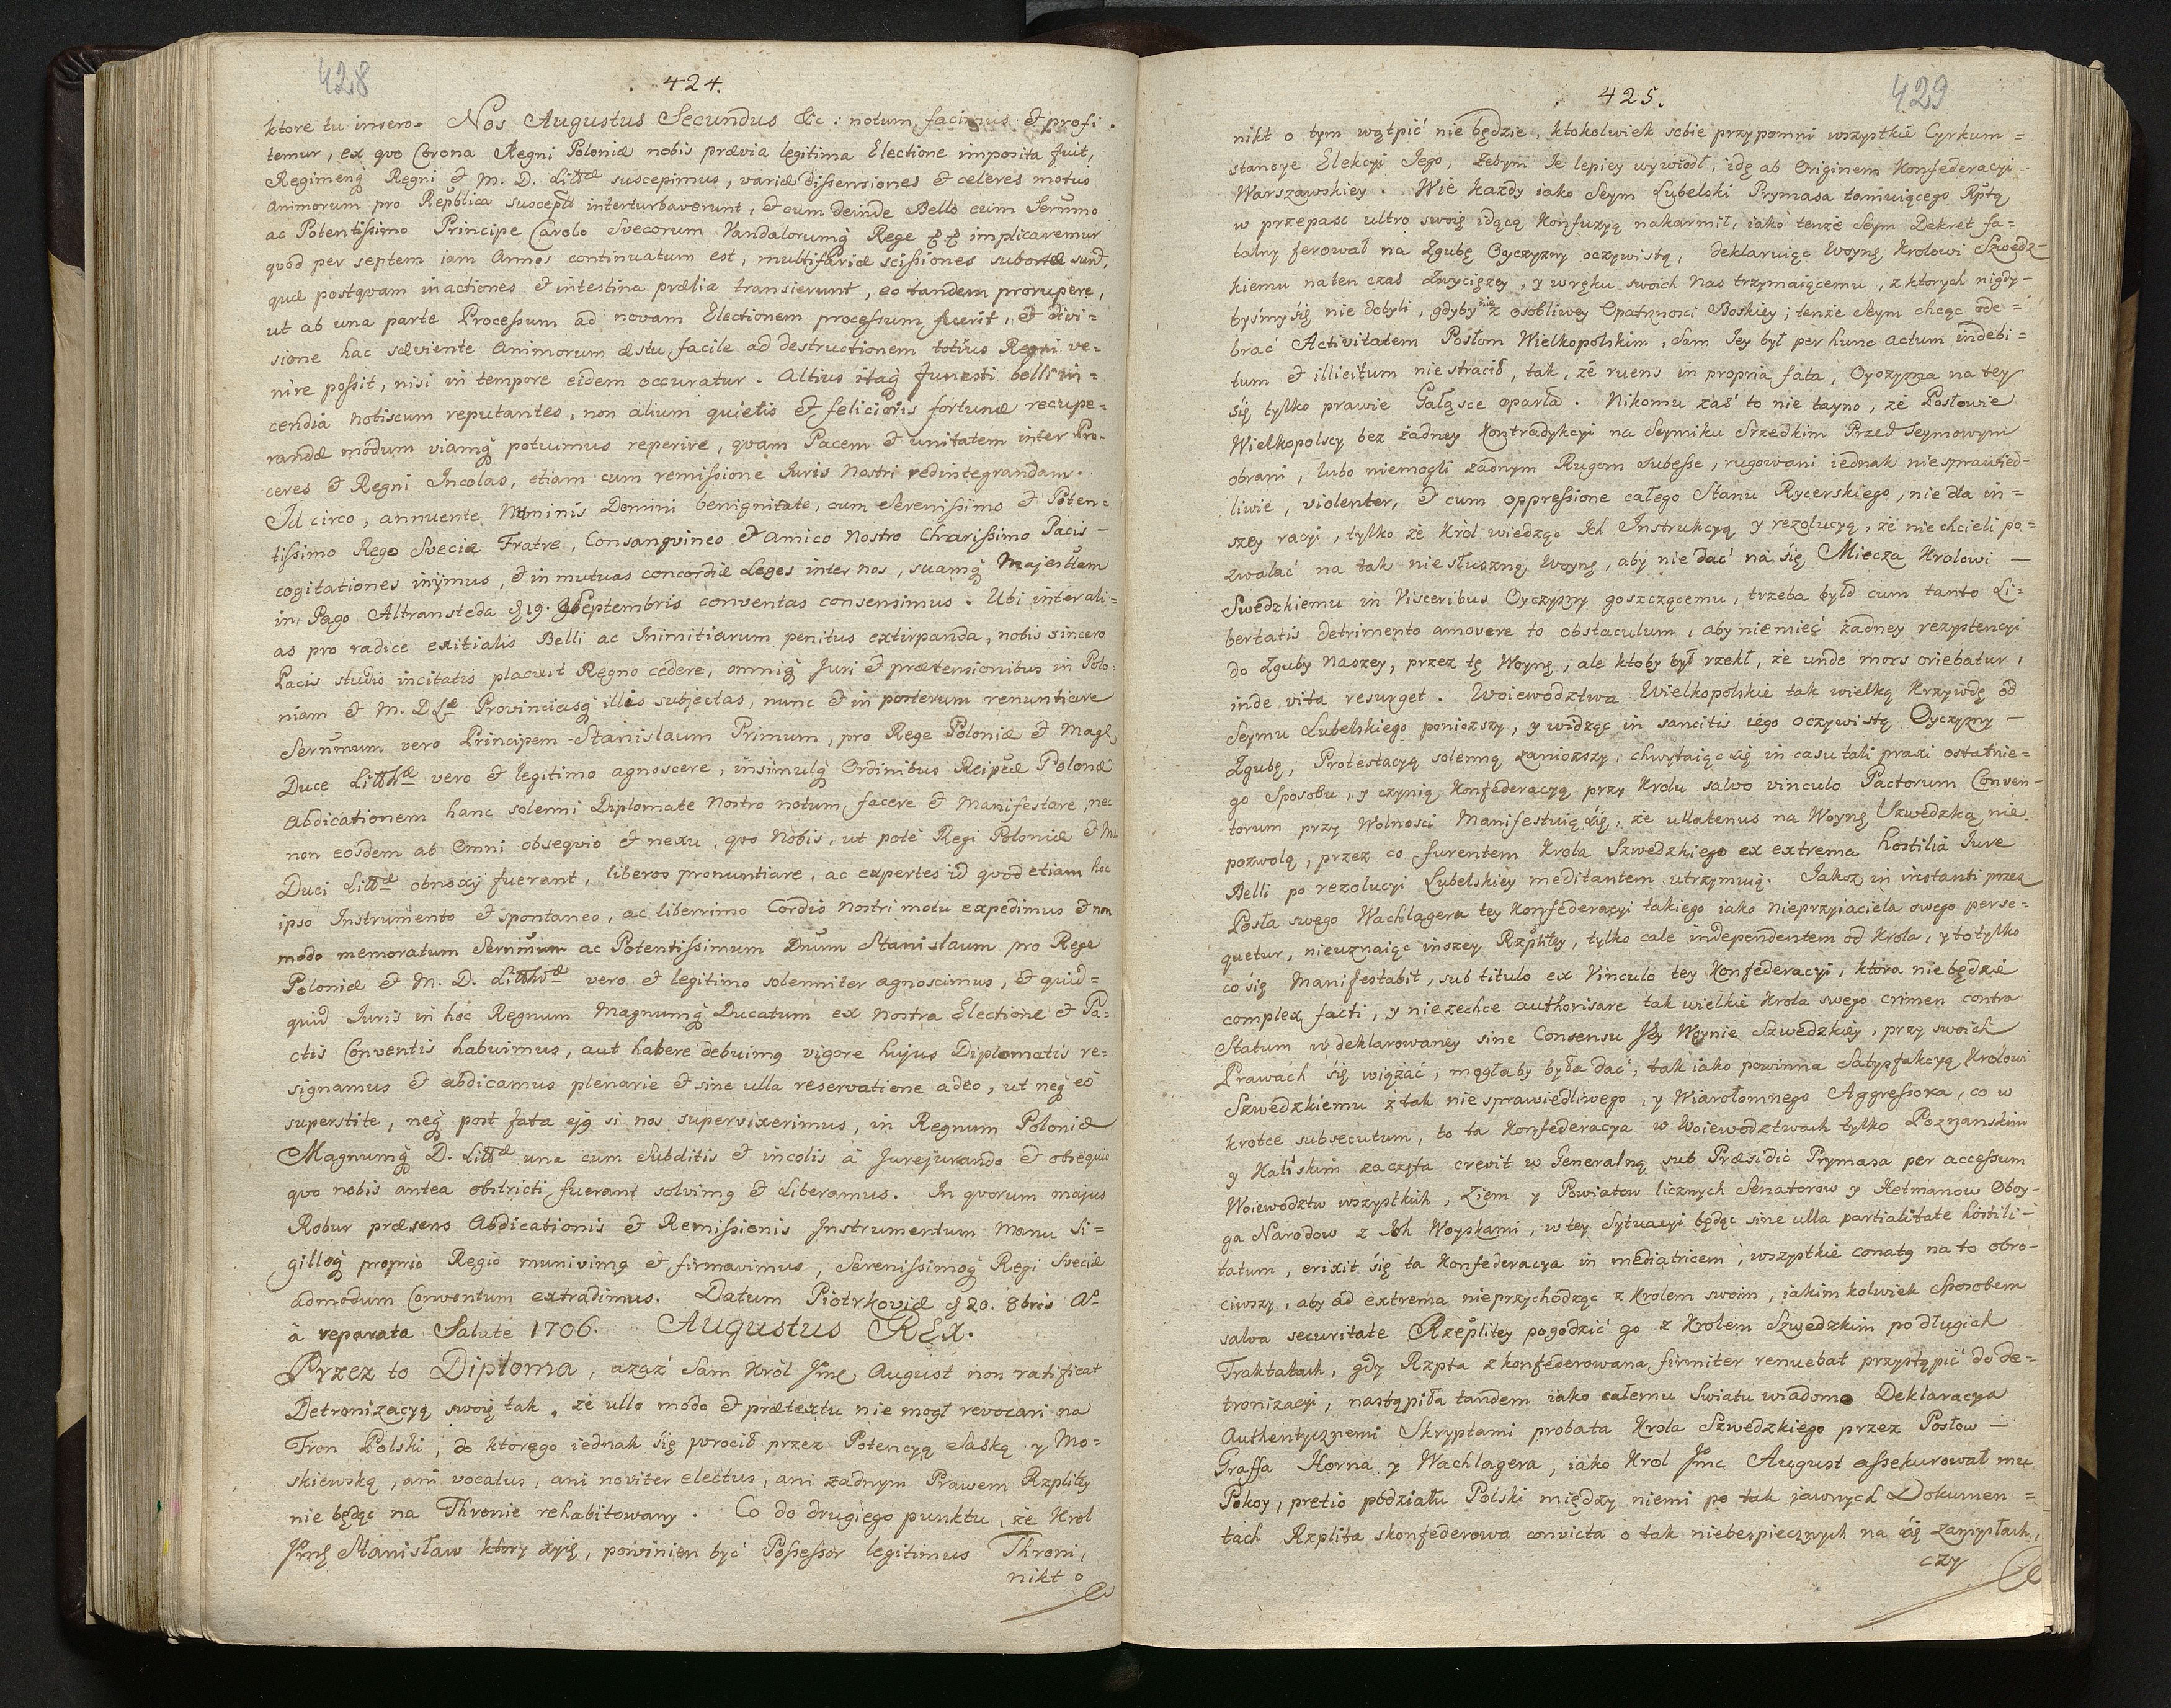 428
424.
ktore tu insero. Nos Augustus Secundus &c: notum facimus & profi.
temur, ex qvo Corona Regni Poloniæ nobis prævia legitima Electione imposita fuit,
Regimenq̃ Regni & M. D. Littlæ suscepimus, variæ dissensiones & celeres motus
Animorum pro Republica suscepti interturbaverunt, & cum deinde Bello cum Sermo
ac Potentissimo Principe Carolo Svecorum Vandalorumq̃ Rege implicaremur
quod per septem iam Annos continuatum est, multifariæ scissiones subortæ sunt,
quæ postqvam in actiones & intestina prælia transierunt, eo tandem prorupere,
ut ab una parte Processum ad novam Electionem processum fuerit, & divi=
sione hac sæviente Animorum æstu facile ad destructionem totius Regni ve=
nire possit, nisi in tempore eidem occuratur. Altius itaq̃ funesti belli in=
cendia Nobiscum reputantes, non alium quietis & felicioris fortunæ recupe=
randæ modum viamq̃ potuimus reperire, qvam Pacem & unitatem inter Pro-
ceres & Regni Incolas, etiam cum remissione Iuris Nostri redintegrandam.
Id circo, annuente Numinis Domini benignitate, cum Serenissimo & Poten=
tissimo Rege Sveciæ Fratre, Consangvineo & Amico Nostro Charissimo Pacis -
cogitationes inijmus, & in mutuas concordiæ Leges inter nos, suamq̃ Majestatem
in Pago Altransteda 19. Septembris conventas consensimus. Ubi inter ali=
as pro radice exitialis Belli ac Inimitiarum penitus extirpanda, nobis sincero
Pacis studio incitatis placuit Regno cedere, omniq̃ Juri & prætensionibus in Polo=
niam & M. D. Læ Provinciasq̃ illis subjectas, nunc & in posterum renuntiare
Sermum vero Principem Stanislaum Primum, pro Rege Poloniæ & Mag.
Duce Litthæ vero & legitimo agnoscere, insimulq̃ Ordinibus Reipcæ Polonæ
Abdicationem hanc solemni Diplomate Nostro notum facere & Manifestare nec
non eosdem ab Omni obseqvio & nexu, qvo Nobis, ut pote Regi Poloniæ & M.
Duci Littæ obnoxij fuerant, liberos pronuntiare, ac expertes id qvod etiam hoc
ipso Instrumento & spontaneo, ac liberrimo Cordis Nostri motu expedimus & non
modo memoratum Sermum ac Potentissimum Dnum Stanislaum pro Rege
Poloniæ & M. D. Litthvæ vero & legitimo solenniter agnoscimus, & quid=
quid Iuris in hoc Regnum Magnumq̃ Ducatum ex Nostra Electione & Pa=
ctis Conventis habuimus, aut habere debuimq vigore hujus Diplomatis re=
signamus & abdicamus plenarie & sine ulla reservatione adeo, ut neq̃ eo
superstite, neq̃ post fata ejq si nos supervixerimus, in Regnum Poloniæ
Magnumq̃ D. Littæ una cum Subditis & incolis à Jurejurando & obsequio
qvo nobis antea obstricti fuerant solvimq & Liberamus. In qvorum majus
Robur præsens Abdicationis & Remissionis Instrumentum Manu Si=
gilloq̃ proprio Regio munivimq & firmavimus, Serenissimoq̃ Regi Sveciæ
admodum Conventum extradimus. Datum Piotrkoviæ 20. 8bris Ao
à reparata Salute 1706. Augustus REX.
Przez to Diploma, azaż sam Król Jmc August non ratificat
Detronizacyą swoię tak, że ullo modo & prætextu nie mogł revocari na
Tron Polski, do ktorego iednak się wrocił przez Potencyą Saską y Mo=
skiewską, ani vocatus, ani noviter electus, ani żadnym Prawem Rzplitey
nie będąc na Thronie rehabitowany. Co do drugiego punktu, że Krol
Jmć Stanisław ktory żyie, powinien być Possessor legitimus Throni,
nikt o
429
425.
nikt o tym wątpić nie będzie, ktokolwiek sobie przypomni wszystkie Cyrkum=
stancye Elekcyi Jego, żebym Je lepiey wywiodł, idę ab Origine Konfederacyi
Warszawskiey. Wie każdy iako Seym Lubelski Prymasa tamuiącego Rptą
w przepasc ultro swoię idącą Konfuzyą nakarmił, iako tenże Seym Dekret fa=
talny ferował na Zgubę Oyczyzny oczywistą, deklaruiąc Woynę Krolowi Szwedz-
kiemu naten czas Zwycięzcy, y w ręku swoich nas trzymaiącemu, z ktorych nigdy-
byśmy się nie dobyli, gdyby nie z osobliwey Opatrznosci Boskiey; tenże Seym chcąc ode=
brać Activitatem Posłom Wielkopolskim, sam Jey był per hunc actum indebi=
tum & illicitum nie stracił, tak, że ruens in propria fata, Oyczyzna na tey
się tylko prawie Gałąsce oparła. Nikomu zaś to nie tayno, że Posłowie
Wielkopolscy bez żadney Kontradykcyi na Seymiku Srzedkim Przed Seymowym
obrani, lubo niemogli żadnym Rugom subesse, rugowani iednak niesprawied-
liwie, violenter, & cum oppressione całego Stanu Rycerskiego, nie dla in=
szey racyi, tylko że Król wiedząc Ich Instrukcyą y rezolucyą, że nie chcieli po=
zwalać na tak nie słuszną Woynę, aby nie dać na się Miecza Krolowi —
Swedzkiemu in Visceribus Oyczyzny goszczącemu, trzeba było cum tanto Li=
bertatis detrimento amovere to obstaculum, aby niemieć żadney rezystencyi
do Zguby Naszey, przez tę Woynę, ale ktoby był rzekł, że unde mors oriebatur,
inde vita resurget. Woiewodztwa Wielkopolskie tak wielką Krzywdę od
Seymu Lubelskiego poniozszy, y widząc in sancitis iego oczywistą Oyczyzny —
Zgubę, Protestacyą solenną zaniozszy, chwytaiąc się in casu tali praxi ostatnie=
go Sposobu, y czynią Konfederacyą przy Krolu salvo vinculo Pactorum Conven-
torum przy Wolnosci Manifestuią się, że ullatenus na Woynę Szwedzką nie
pozwolą, przez co furentem Krola Szwedzkiego ex extrema hostilia Iure
Belli po rezolucyi Lubelskiey meditantem utrzymuią. Jakoz in instanti przez
Posła swego Wachlagera tey Konfederacyi takiego iako Nieprzyiaciela swego perse=
quetur, nieuznaiąc inszey Rzplitey, tylko cale independentem od Krola, y to tylko
co się Manifestabit, sub titulo ex Vinculo tey Konfederacyi, ktora nie będzie
complex facti, y niezechce authorisare tak wielkie Krola swego crimen contra
Statum w deklarowaney sine Consensu Jey Woynie Szwedzkiey, przy swoich
Prawach się wiązać, mogłaby była dać, tak iako powinna Satysfakcyą Królowi
Szwedzkiemu z tak nie sprawiedliwego, y Wiarołomnego Aggressora, co w
krotce subsecutum, bo ta Konfederacya w Woiewodztwach tylko Poznanskim
y Kaliskim zaczęta crevit w Generalną sub Præsidio Prymasa per accessum
Woiewodztw wszystkich, Ziem y Powiatow licznych Senatorow y Hetmanow Oboy-
ga Narodow z Ich Woyskami, w tey Sytuacyi będąc sine ulla partialitate hostili-
tatum, erixit się ta Konfederacya in mediatricem, wszystkie conatq na to obro-
ciwszy, aby ad extrema nieprzychodząc z Krolem swoim, iakimkolwiek Sposobem
salva securitate Rzeplitey pogodzić go z Krolem Szwedzkim po długich
Traktatach, gdy Rzpta zkonfederowana firmiter renuebat przystąpić do de=
tronizacyi, nastąpiła tandem iako całemu Swiatu wiadomo Deklaracya
Authentycznemi Skryptami probata Krola Szwedzkiego przez Posłow —
Graffa Horna y Wachlagera, iako Krol Jmc August assekurował mu
Pokoy, pretio podziału Polski między niemi po tak jawnych Dokumen=
tach Rzplita skonfederowa convicta o tak niebespiecznych na się Zamysłach,
czy